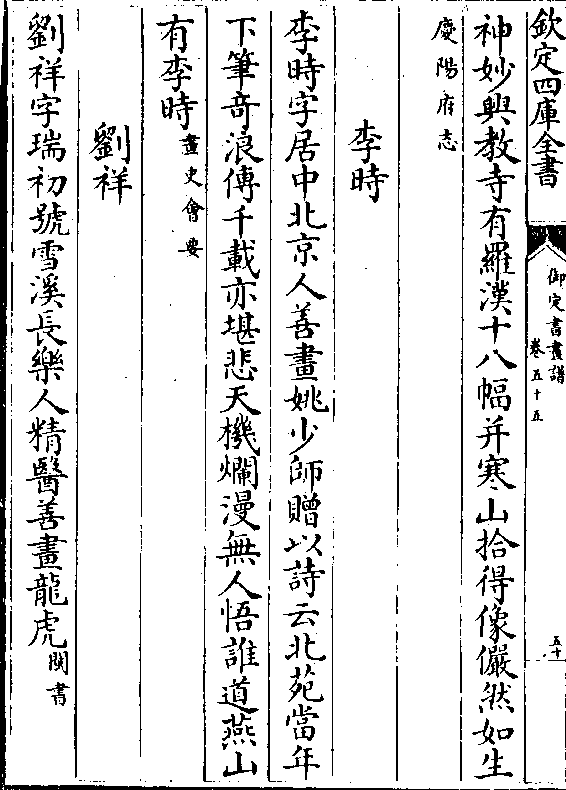 欽定四庫全書
御定書畫譜
卷五十五
五十
神妙興教寺有羅漢十八幅并寒山拾得像儼然如生
慶陽府志
李時
李時字居中北京人善畫姚少師贈以詩云北苑當年
下筆竒浪傳千載亦堪悲天機爛漫無人悟誰道燕山
有李時畫史會要
劉祥
劉祥字瑞初號雪溪長樂人精醫善畫龍虎閩書